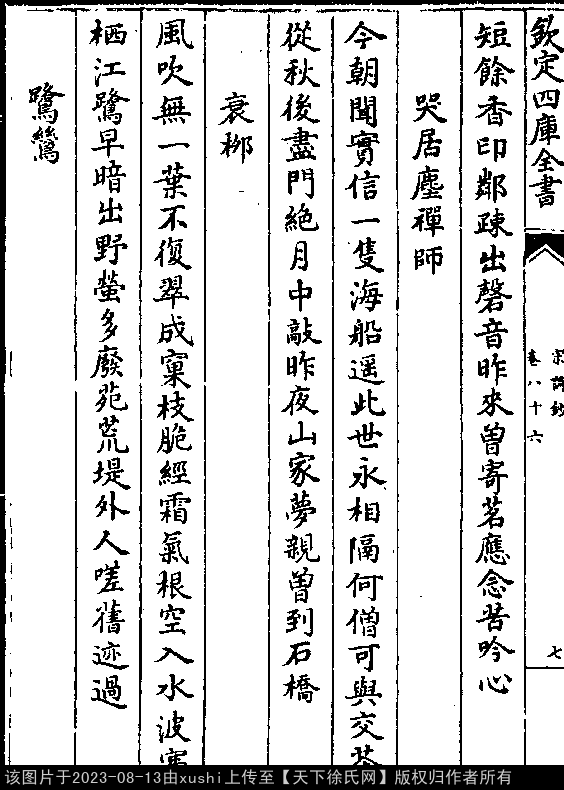 欽定四庫全書
宋詩鈔
卷八十六
七
短餘香印鄰疎出磬音昨來曽寄茗應念苦吟心
哭居塵禪師
今朝聞實信一隻海船遥此世永相隔何僧可與交茶
從秋後盡門絶月中敲昨夜山家夢親曽到石橋
衰栁
風吹無一葉不復翠成窠枝脆經霜氣根空入水波寒
栖江鷺早暗出野螢多廢苑荒堤外人嗟舊迹過
鷺鷥
该图片于2023-08-13由xushi上传至【天下徐氏网】版权归作者所有